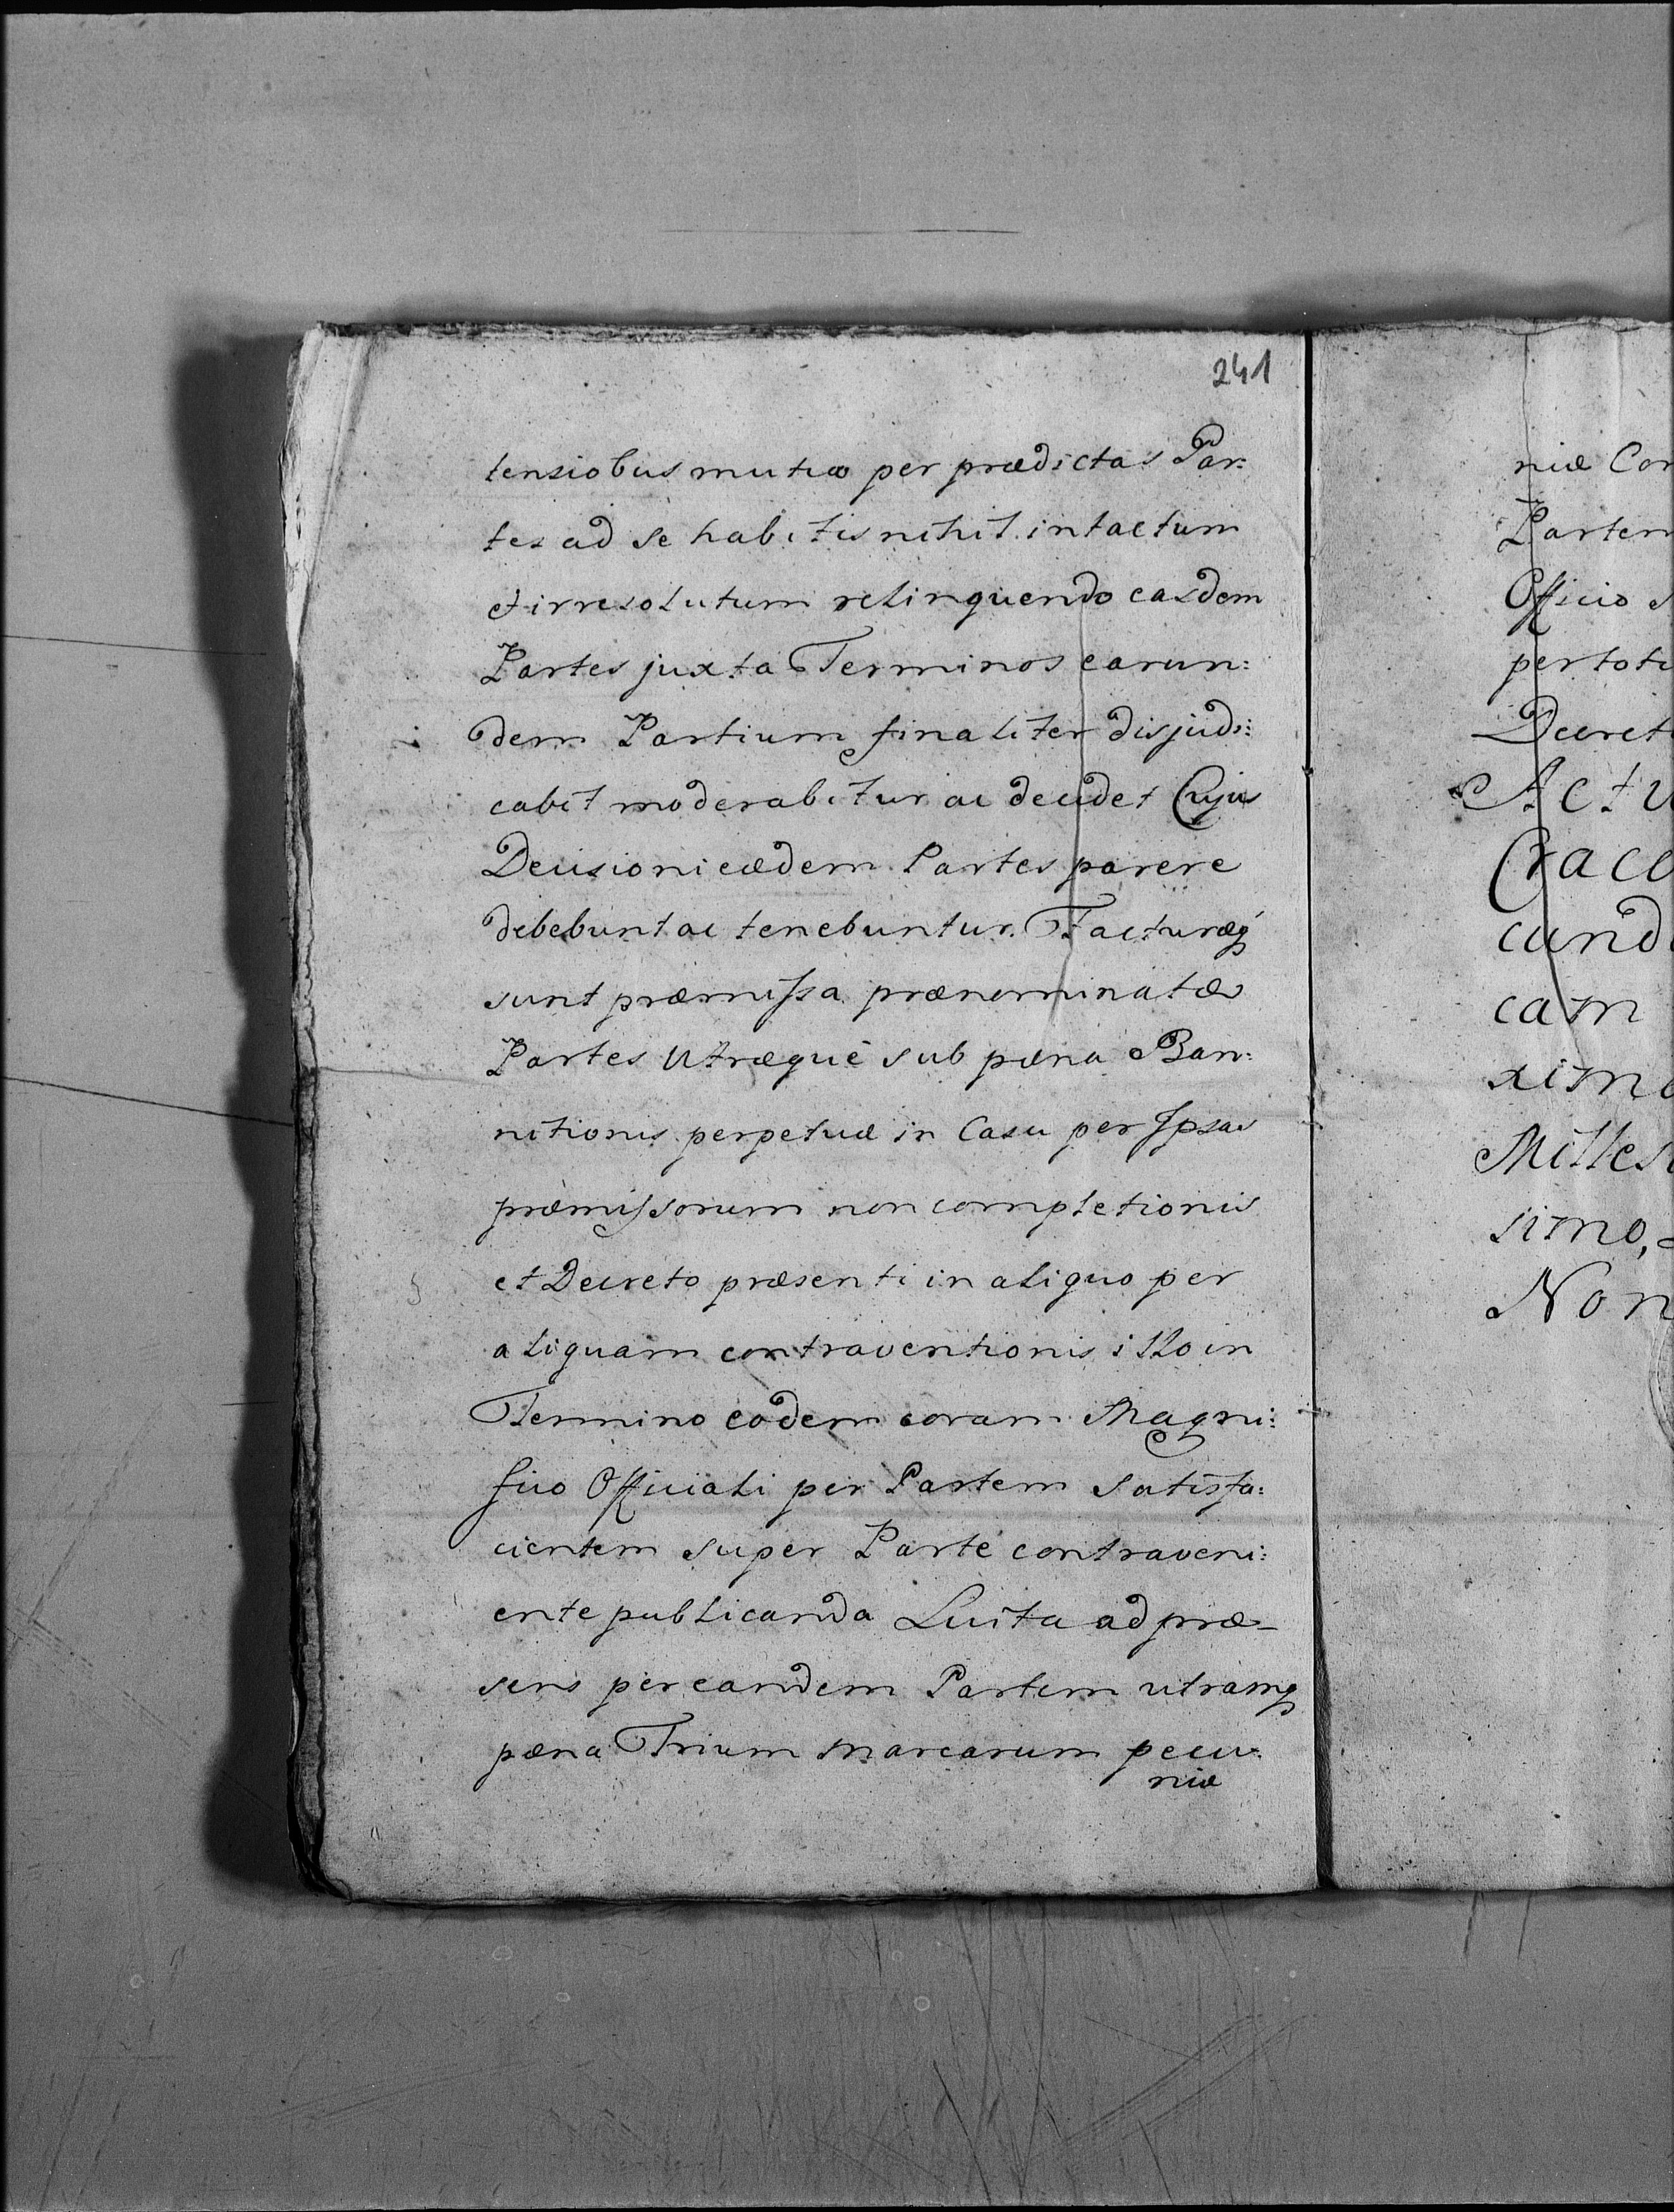 241
tensiobus mutuo per prædictas Par:
tes ad se habitis nihil intactum
et irresolutum relinquendo easdem
Partes juxta Terminos earun:
dem Partium finaliter disjudi:
cabit moderabitur ac decidet Cujus
Decisioni eædem Partes parere
debebunt ac tenebuntur. Facturæq
sunt præmissa prænominatæ
Partes Utræque sub pæna Ban:
nitionis perpetuæ in Casu per Ipsas
præmissorum non completionis
et Decreto præsenti in aliquo per
aliquam contraventionis illo in
Termino eodem coram Magni:
fico Officiali per Partem satisfa:
cientem super Parte contraveni:
ente publicanda Luita ad præ-
sens per eandem Partem utramq
pæna Trium marcarum pecu:
niæ
niæ Con
Partem
Officio s
per toti
Decret
Actu
Craco
cund
cam
xima
Milles
simo,
Non